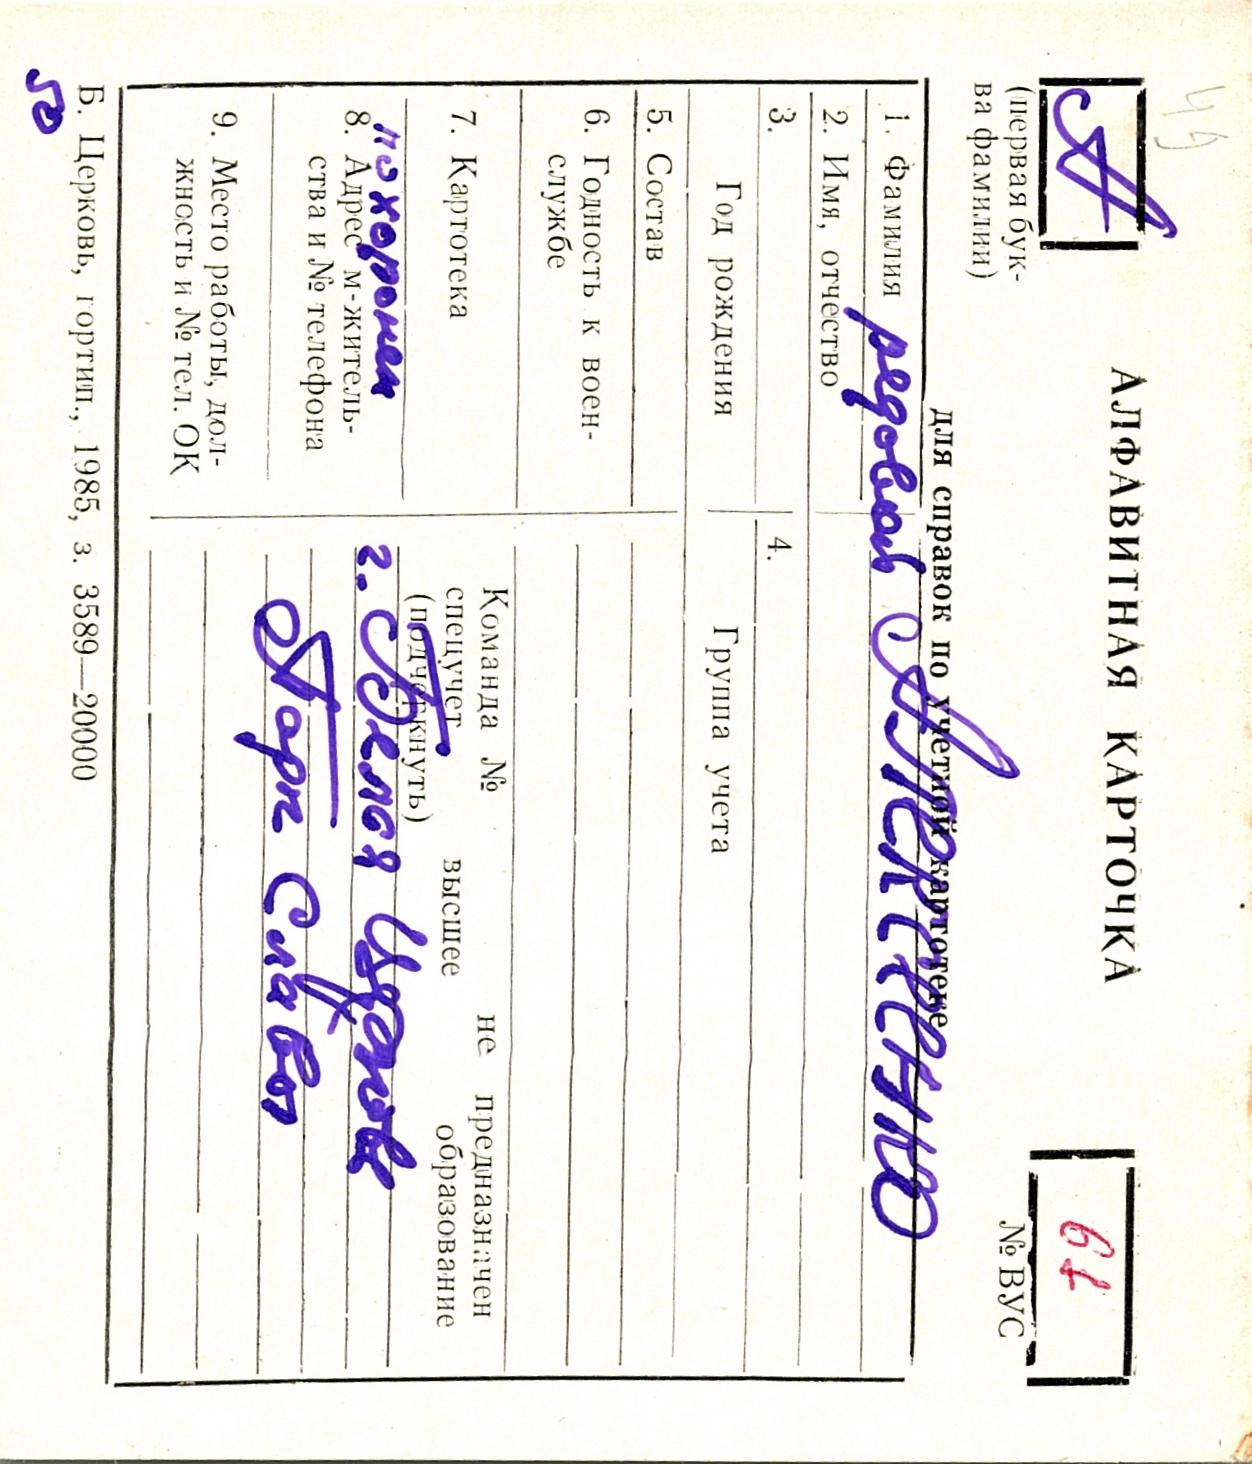 А
(первая бук-
ва фамилии)
АЛФАВИТНАЯ КАРТОЧКА
для справок по учетной картотеке
№ ВУС
1. Фамилия рядовой Алексеенко
2. Имя, отчество
3.
4.
Год рождения
Группа учета
5. Состав
6. Годность к воен-
службе
7. Картотека
Команда № не предназначен
спецучет высшее образование
(подчеркнуть)
похоронен г. Белая Церковь
8. Адрес м-житель-
ства и № телефона
Парк Славы
9. Место работы, дол-
жность и № тел. ОК
Б. Церковь, гортип., 1985, з. 3589—20000
50